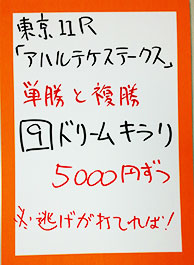 東京11R
「アハルテケステークス」
単勝と複勝
9ドリームキラリ
5000円ずつ
※逃げが打てれば!